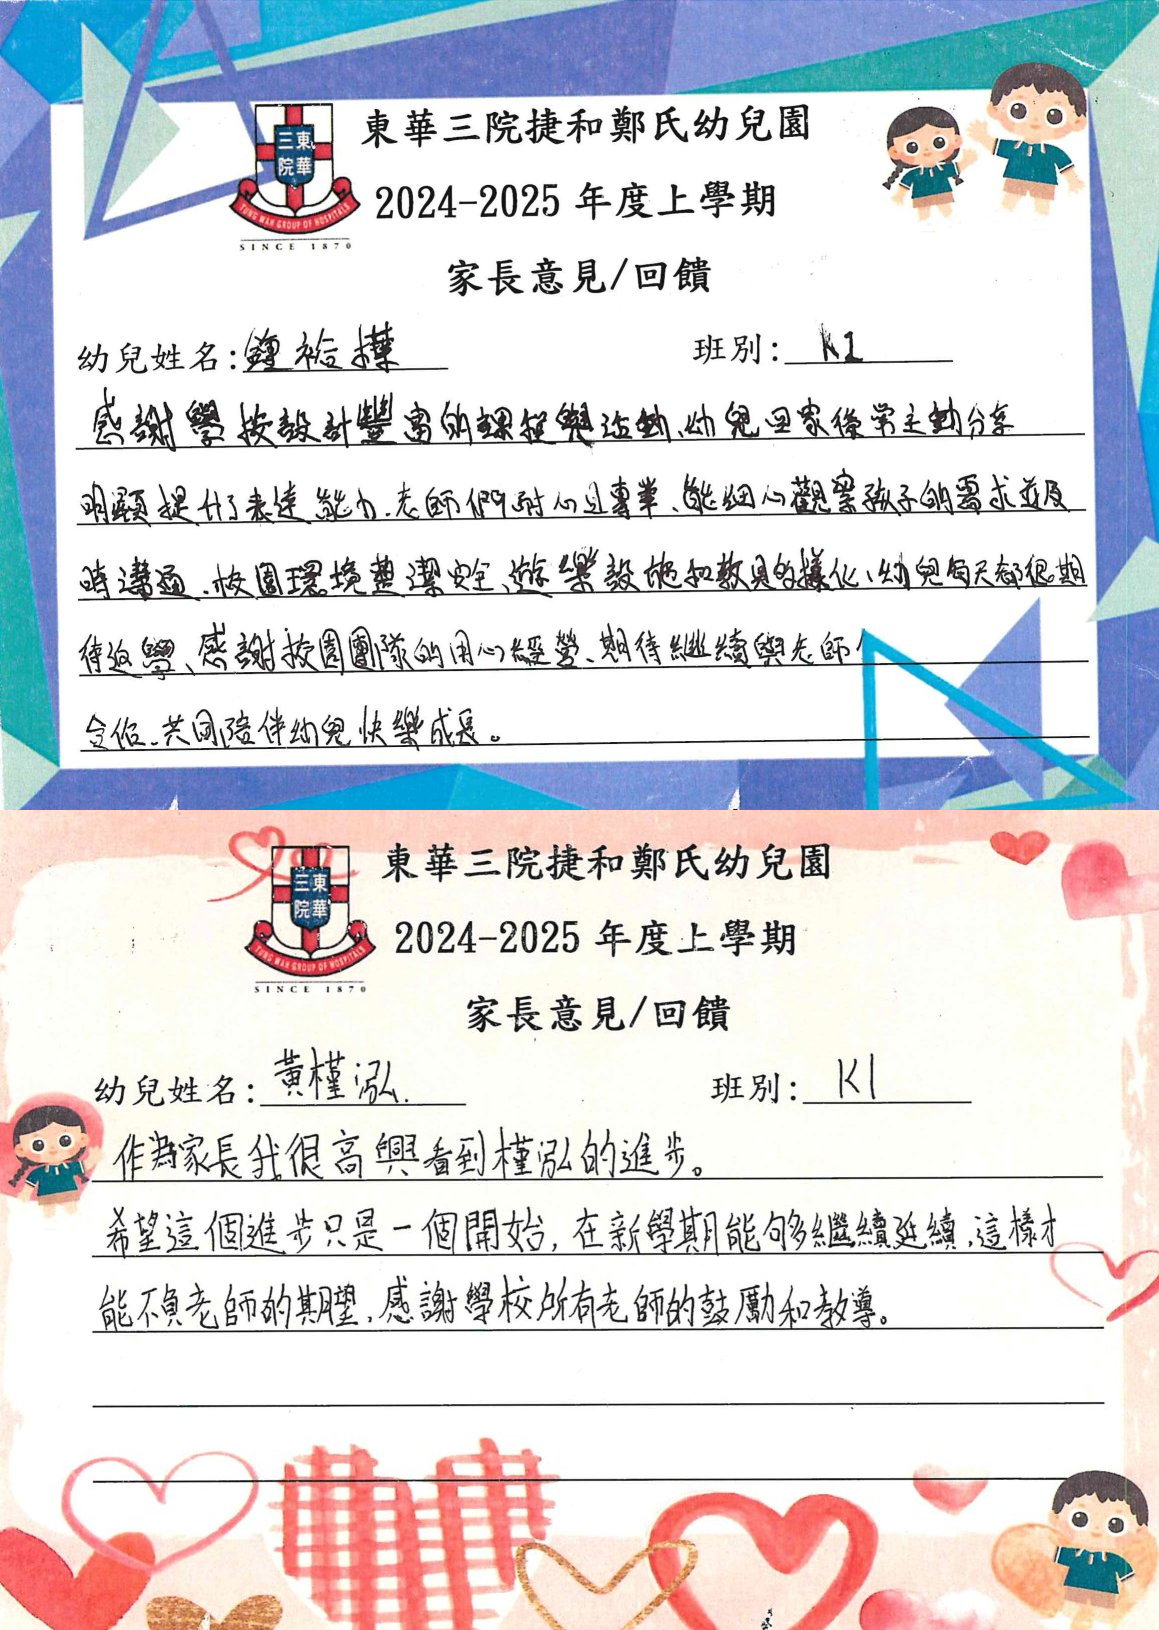 東華三院捷和鄭氏幼兒園
三東
院華
TUNG WAH GROUP OF HOSPITALS
SINCE 1870
2024-2025 年度上學期
家長意見/回饋
幼兒姓名: 鍾袷樺
班別: K1
感謝學校設計豐富的課程與活動、幼兒回家後常主動分享
明顯提升了表達能力、老師們耐心且專業、能細心觀察孩子的需求並及
時溝通、校園環境整潔安全、遊樂設施和教具多樣化、幼兒每天都很期
待返學、感謝校園團隊的用心經營、期待繼續與老師
合作、共同陪伴幼兒快樂成長。
東華三院捷和鄭氏幼兒園
三東
院華
TUNG WAH GROUP OF HOSPITALS
SINCE 1870
2024-2025 年度上學期
家長意見/回饋
幼兒姓名: 黃槿泓.
班別: K1
作為家長我很高興看到槿泓的進步。
希望這個進步只是一個開始, 在新學期能够繼續延續,這樣才
能不負老師的期望,感謝學校所有老師的鼓勵和教導。